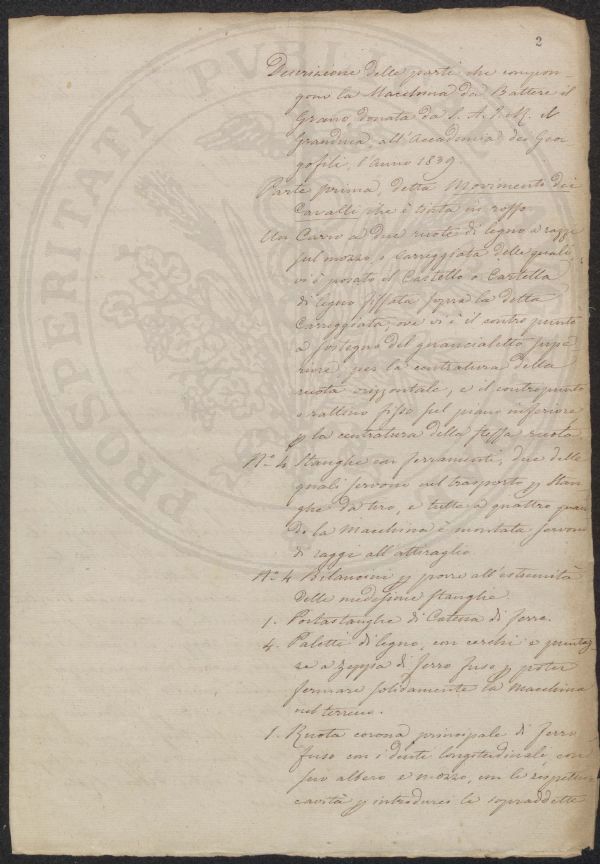 2
Descrizione delle parti che compon-
gono la Macchina da Battere il
Grano, donata da S. A. I. e R. il
Granduca, all'Accademia dei Geor
gofili, l'Anno 1839.
Parte prima, detta Movimento dei
Cavalli che è tinta in rosso.
Un Carro a due ruote di legno a razze
sul mozzo, o Carreggiata delle quali
vi è posato il Castello o Cartella
di legno fissata sopra la detta
Carreggiata, ove vi è il contro punto
a sostegno del grancialetto supe
riore per la centratura della
ruota orizzontale, e il contropunto
o rallino fisso sul piano inferiore
p la centratura della stessa ruota.
N.o 4 Stanghe con ferramenti, due delle
quali servono nel trasporto p stan
ghe da tiro, e tutte a quattro quan
do la Macchina è montata servono
di raggi all'attiraglio.
N.o 4 Bilancini p porre all'estremità
delle medesime stanghe.
1. Portastanghe di Catena di ferro.
4. Paletti di legno, con cerchi e puntaz
ze a zeppa di ferro fuso p poter
fermare solidamente la Macchina
nel terreno.
1. Ruota corona principale di ferro
fuso con i denti longitudinali, con
suo albero e mozzo, con le rispettive
cavità p introdurci le sopraddette
PROSPERITATI PVBLICAE